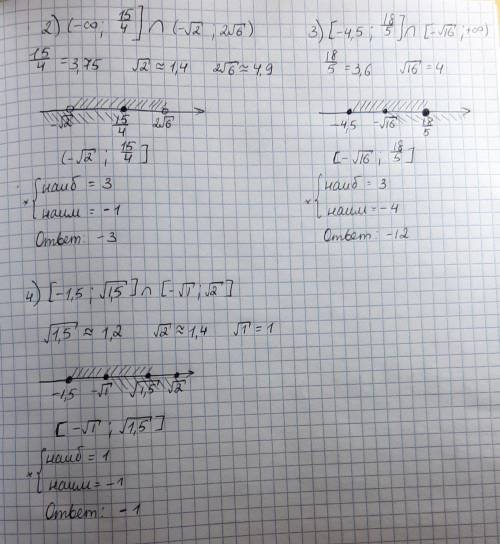 2) (-∞; 15/4] ∩ (-√2; 2√6)
15/4 = 3,75   √2 ≈ 1,4   2√6 ≈ 4,9
-√2   15/4   2√6
(-√2; 15/4]
* { наиб = 3
наим = -1
Ответ: -3
3) [-4,5; 18/5] ∩ [-√16; +∞)
18/5 = 3,6   √16 = 4
-4,5   -√16   18/5
[-√16; 18/5]
* { наиб = 3
наим = -4
Ответ: -12
4) [-1,5; √1,5] ∩ [-√1; √2]
√1,5 ≈ 1,2   √2 ≈ 1,4   √1 = 1
-1,5   -√1   √1,5   √2
[-√1; √1,5]
* { наиб = 1
наим = -1
Ответ: -1